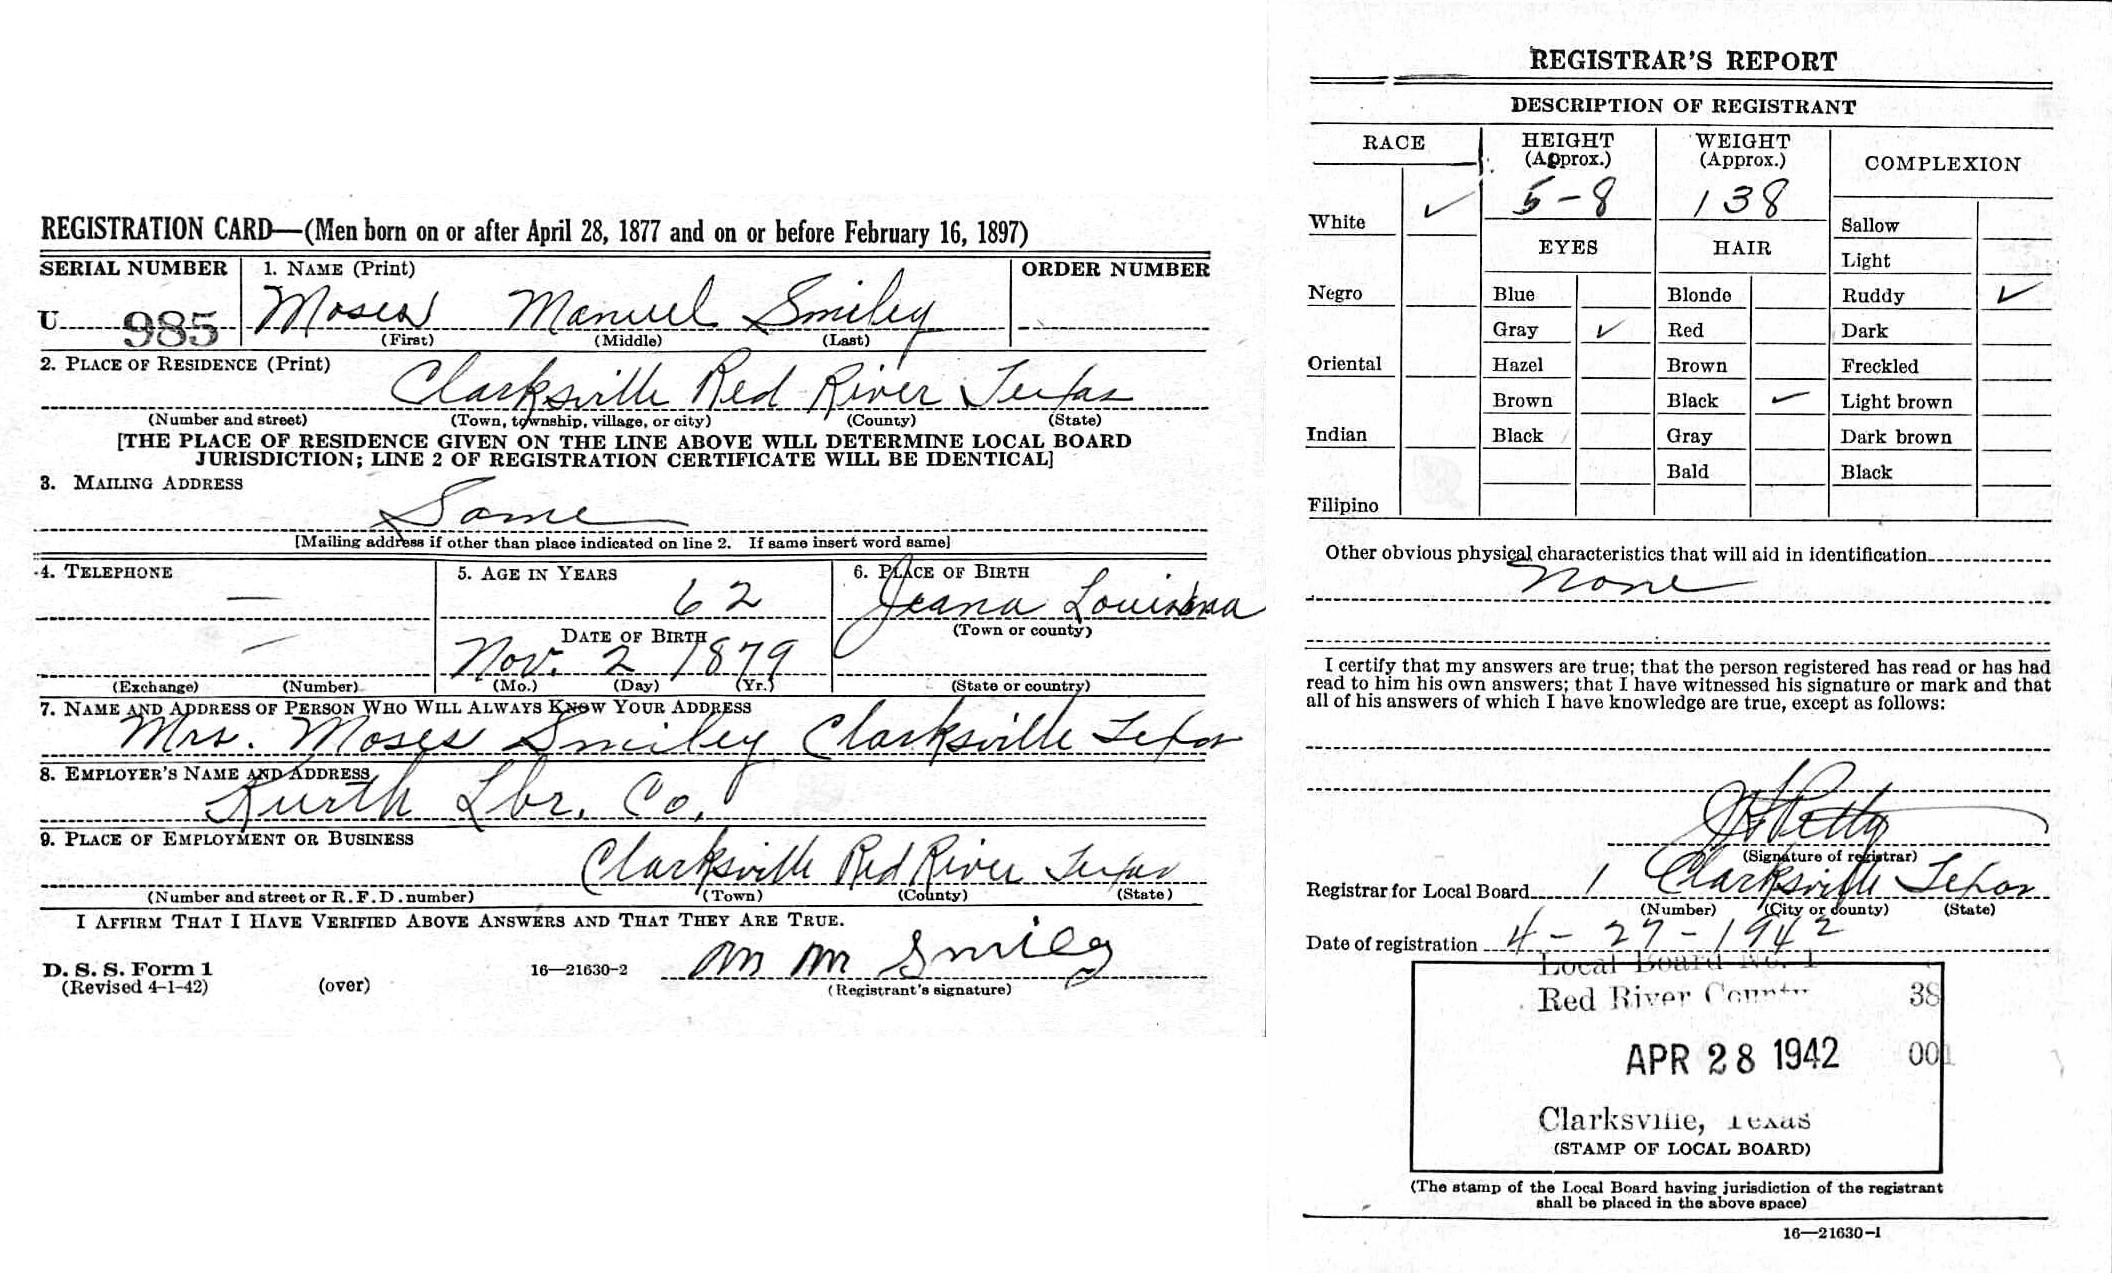 REGISTRATION CARD—(Men born on or after April 28, 1877 and on or before February 16, 1897)
SERIAL NUMBER 1. NAME (Print) ORDER NUMBER
U 985 Moses Manuel Smiley
(First) (Middle) (Last)
2. PLACE OF RESIDENCE (Print)
Clarksville Red River Texas
(Number and street) (Town, township, village, or city) (County) (State)
[THE PLACE OF RESIDENCE GIVEN ON THE LINE ABOVE WILL DETERMINE LOCAL BOARD
JURISDICTION; LINE 2 OF REGISTRATION CERTIFICATE WILL BE IDENTICAL]
3. MAILING ADDRESS
Same
[Mailing address if other than place indicated on line 2. If same insert word same]
4. TELEPHONE 5. AGE IN YEARS 6. PLACE OF BIRTH
— 62 Jeana Louisiana
DATE OF BIRTH (Town or county)
— Nov. 2 1879
(Exchange) (Number) (Mo.) (Day) (Yr.) (State or country)
7. NAME AND ADDRESS OF PERSON WHO WILL ALWAYS KNOW YOUR ADDRESS
Mrs. Moses Smiley Clarksville Texas
8. EMPLOYER'S NAME AND ADDRESS
Kurth Lbr. Co.
9. PLACE OF EMPLOYMENT OR BUSINESS
Clarksville Red River Texas
(Number and street or R. F. D. number) (Town) (County) (State)
I AFFIRM THAT I HAVE VERIFIED ABOVE ANSWERS AND THAT THEY ARE TRUE.
D. S. S. Form 1 16—21630-2 M M Smiley
(Revised 4-1-42) (over) (Registrant's signature)
REGISTRAR'S REPORT
DESCRIPTION OF REGISTRANT
RACE HEIGHT (Approx.) WEIGHT (Approx.) COMPLEXION
White ✓ 5-8 138 Sallow
EYES HAIR Light
Negro Blue Blonde Ruddy ✓
Gray ✓ Red Dark
Oriental Hazel Brown Freckled
Brown Black ✓ Light brown
Indian Black Gray Dark brown
Bald Black
Filipino
Other obvious physical characteristics that will aid in identification
None
I certify that my answers are true; that the person registered has read or has had
read to him his own answers; that I have witnessed his signature or mark and that
all of his answers of which I have knowledge are true, except as follows:
Petty
(Signature of registrar)
Registrar for Local Board 1 Clarksville Texas
(Number) (City or county) (State)
Date of registration 4-27-1942
Local Board No. 1
Red River County 38
APR 28 1942 001
Clarksville, Texas
(STAMP OF LOCAL BOARD)
(The stamp of the Local Board having jurisdiction of the registrant
shall be placed in the above space)
16—21630-1